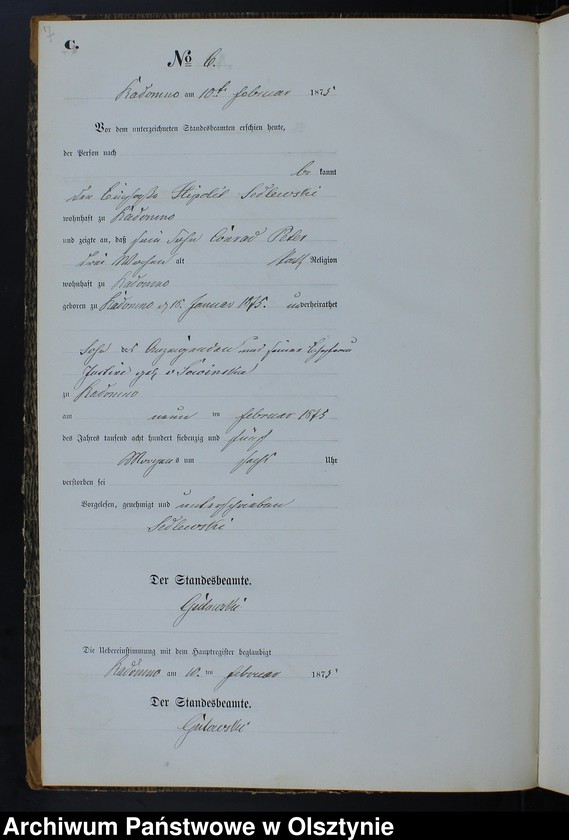 C.
No 6.
Radomno am 10t Februar 1875
Vor dem unterzeichneten Standesbeamten erschien heute,
der Person nach
be kannt
der Einsaße Hipolit Sedlewski
wohnhaft zu Radomno
und zeigte an, daß sein Sohn Conrad Peter
drei Wochen alt kath Religion
wohnhaft zu Radomno
geboren zu Radomno 18. Januar 1875. unverheirathet
Sohn des Anzeigenden und seiner Ehefrau
Justine geb
zu Radomno
am neun ten Februar 1875
des Jahres tausend acht hundert siebenzig und fünf
Morgens um sechs Uhr
verstorben sei
Vorgelesen, genehmigt und unterschrieben
Sedlewski
Der Standesbeamte.
Gutowski
Die Uebereinstimmung mit dem Hauptregister beglaubigt
Radomno am 10. ten Februar 1875
Der Standesbeamte.
Gutowski
Archiwum Państwowe w Olsztynie